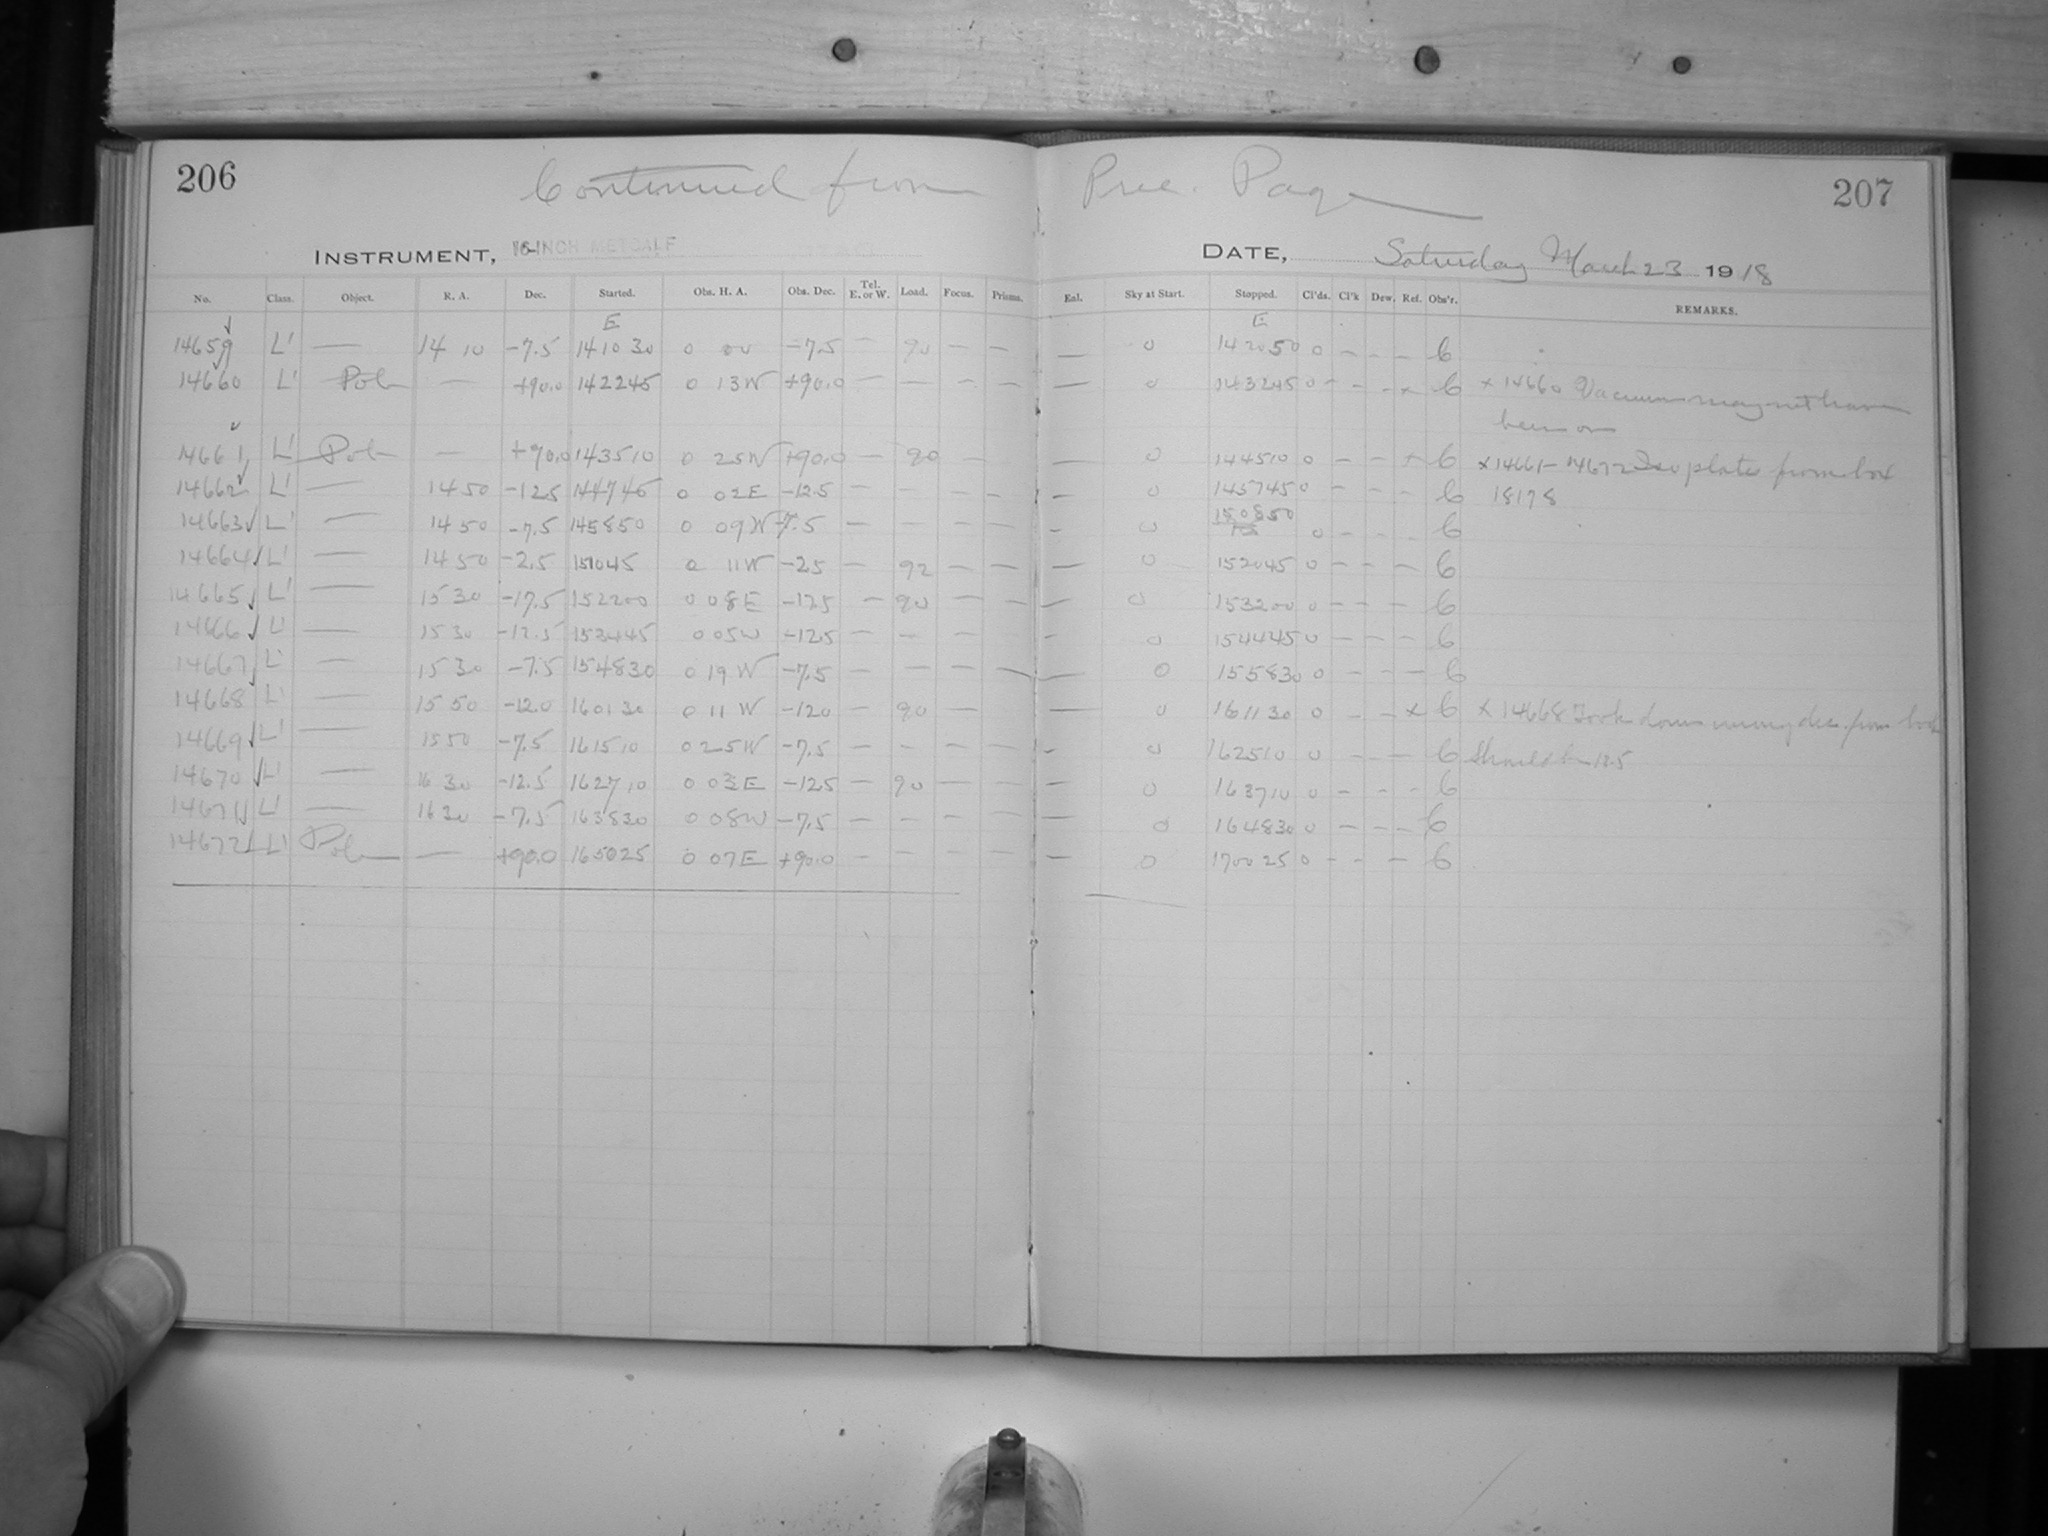 206 Continued from Prec. Page 207
INSTRUMENT, 16-INCH METCALF DATE, Saturday March 23 1918
No. Class. Object. R. A. Dec. Started. Obs. H. A. Obs. Dec. Tel. E. or W. Load. Focus. Prisms. Eal. Sky at Start. Stopped. Cl'ds. Cl'k Dew. Ref. Obs'r. REMARKS.
E E
14659 L' — 14 10 -7.5 141030 0 00 -7.5 — 90 — — — 0 142050 0 — — — 6
14660 L' Pole — +90.0 142245 0 13W +90.0 — — — — — 0 143245 0 — — x 6 x 14660 Vacuum magnet
been on
14661 L' Pole — +90.0 143510 0 25W +90.0 — 90 — — 0 144510 0 — — x 6 x 14661-14672 Iso plates from box
14662 L' — 14 50 -12.5 144745 0 02E -12.5 — — — — — 0 145745 0 — — — 6 18178
14663 L' — 14 50 -7.5 145850 0 09W -7.5 — — — — — 0 150850 0 — — — 6
14664 L' — 14 50 -2.5 151045 0 11W -2.5 — 92 — — — 0 152045 0 — — — 6
14665 L' — 15 30 -17.5 152200 0 08E -17.5 — 90 — — — 0 153200 0 — — — 6
14666 L' — 15 30 -12.5 153445 0 05W -12.5 — — — — 0 154445 0 — — — 6
14667 L' — 15 30 -7.5 154830 0 19W -7.5 — — — — — 0 155830 0 — — — 6
14668 L' — 15 50 -12.0 160130 0 11W -12.0 — 90 — — 0 161130 0 — — x 6 x 14668 Took down wrong dec. from book
14669 L' — 15 50 -7.5 161510 0 25W -7.5 — — — — — 0 162510 0 — — — 6 Should be 12.5
14670 L' — 16 30 -12.5 162710 0 03E -12.5 — 90 — — — 0 163710 0 — — — 6
14671 L' — 16 30 -7.5 163830 0 08W -7.5 — — — — — 0 164830 0 — — — 6
14672 L' Pole — +90.0 165025 0 07E +90.0 — — — — — 0 170025 0 — — — 6